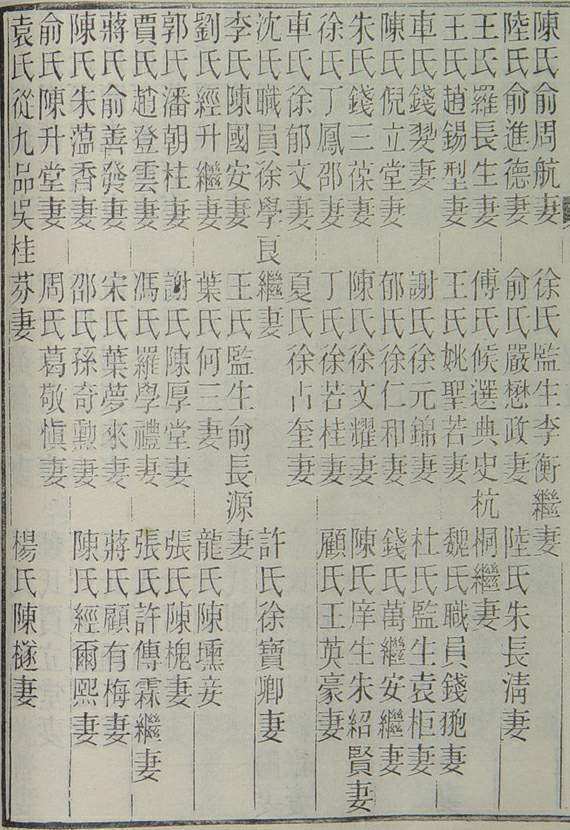 陳氏俞周航妻　徐氏監生李衡繼妻
陸氏俞進德妻　俞氏嚴懋政妻　陸氏朱長清妻
王氏羅長生妻　傅氏候選典史杭桐繼妻
王氏趙錫型妻　王氏姚聖若妻　魏氏職員錢妻
車氏錢翜妻　謝氏徐元錦妻　杜氏監生袁柜妻
陳氏倪立堂妻　郁氏徐仁和妻　錢氏萬繼安繼妻
朱氏錢三葆妻　陳氏徐文耀妻　陳氏庠生朱紹賢妻
徐氏丁鳳邵妻　丁氏徐若桂妻　顧氏王英豪妻
車氏徐郁文妻　夏氏徐占奎妻
沈氏職員徐學良繼妻　許氏徐寶卿妻
李氏陳國安妻　王氏監生俞長源妻
劉氏經升繼妻　葉氏何三妻　龍氏陳壎妾
郭氏潘朝柱妻　謝氏陳厚堂妻　張氏陳槐妻
賈氏趙登雲妻　馮氏羅學禮妻　張氏許傳霖繼妻
蔣氏俞善發妻　宋氏葉夢來妻　蔣氏顧有梅妻
陳氏朱薀香妻　邵氏孫奇勳妻　陳氏經爾熙妻
俞氏陳升堂妻　周氏葛敬慎妻
袁氏從九品吳桂芬妻　楊氏陳檖妻